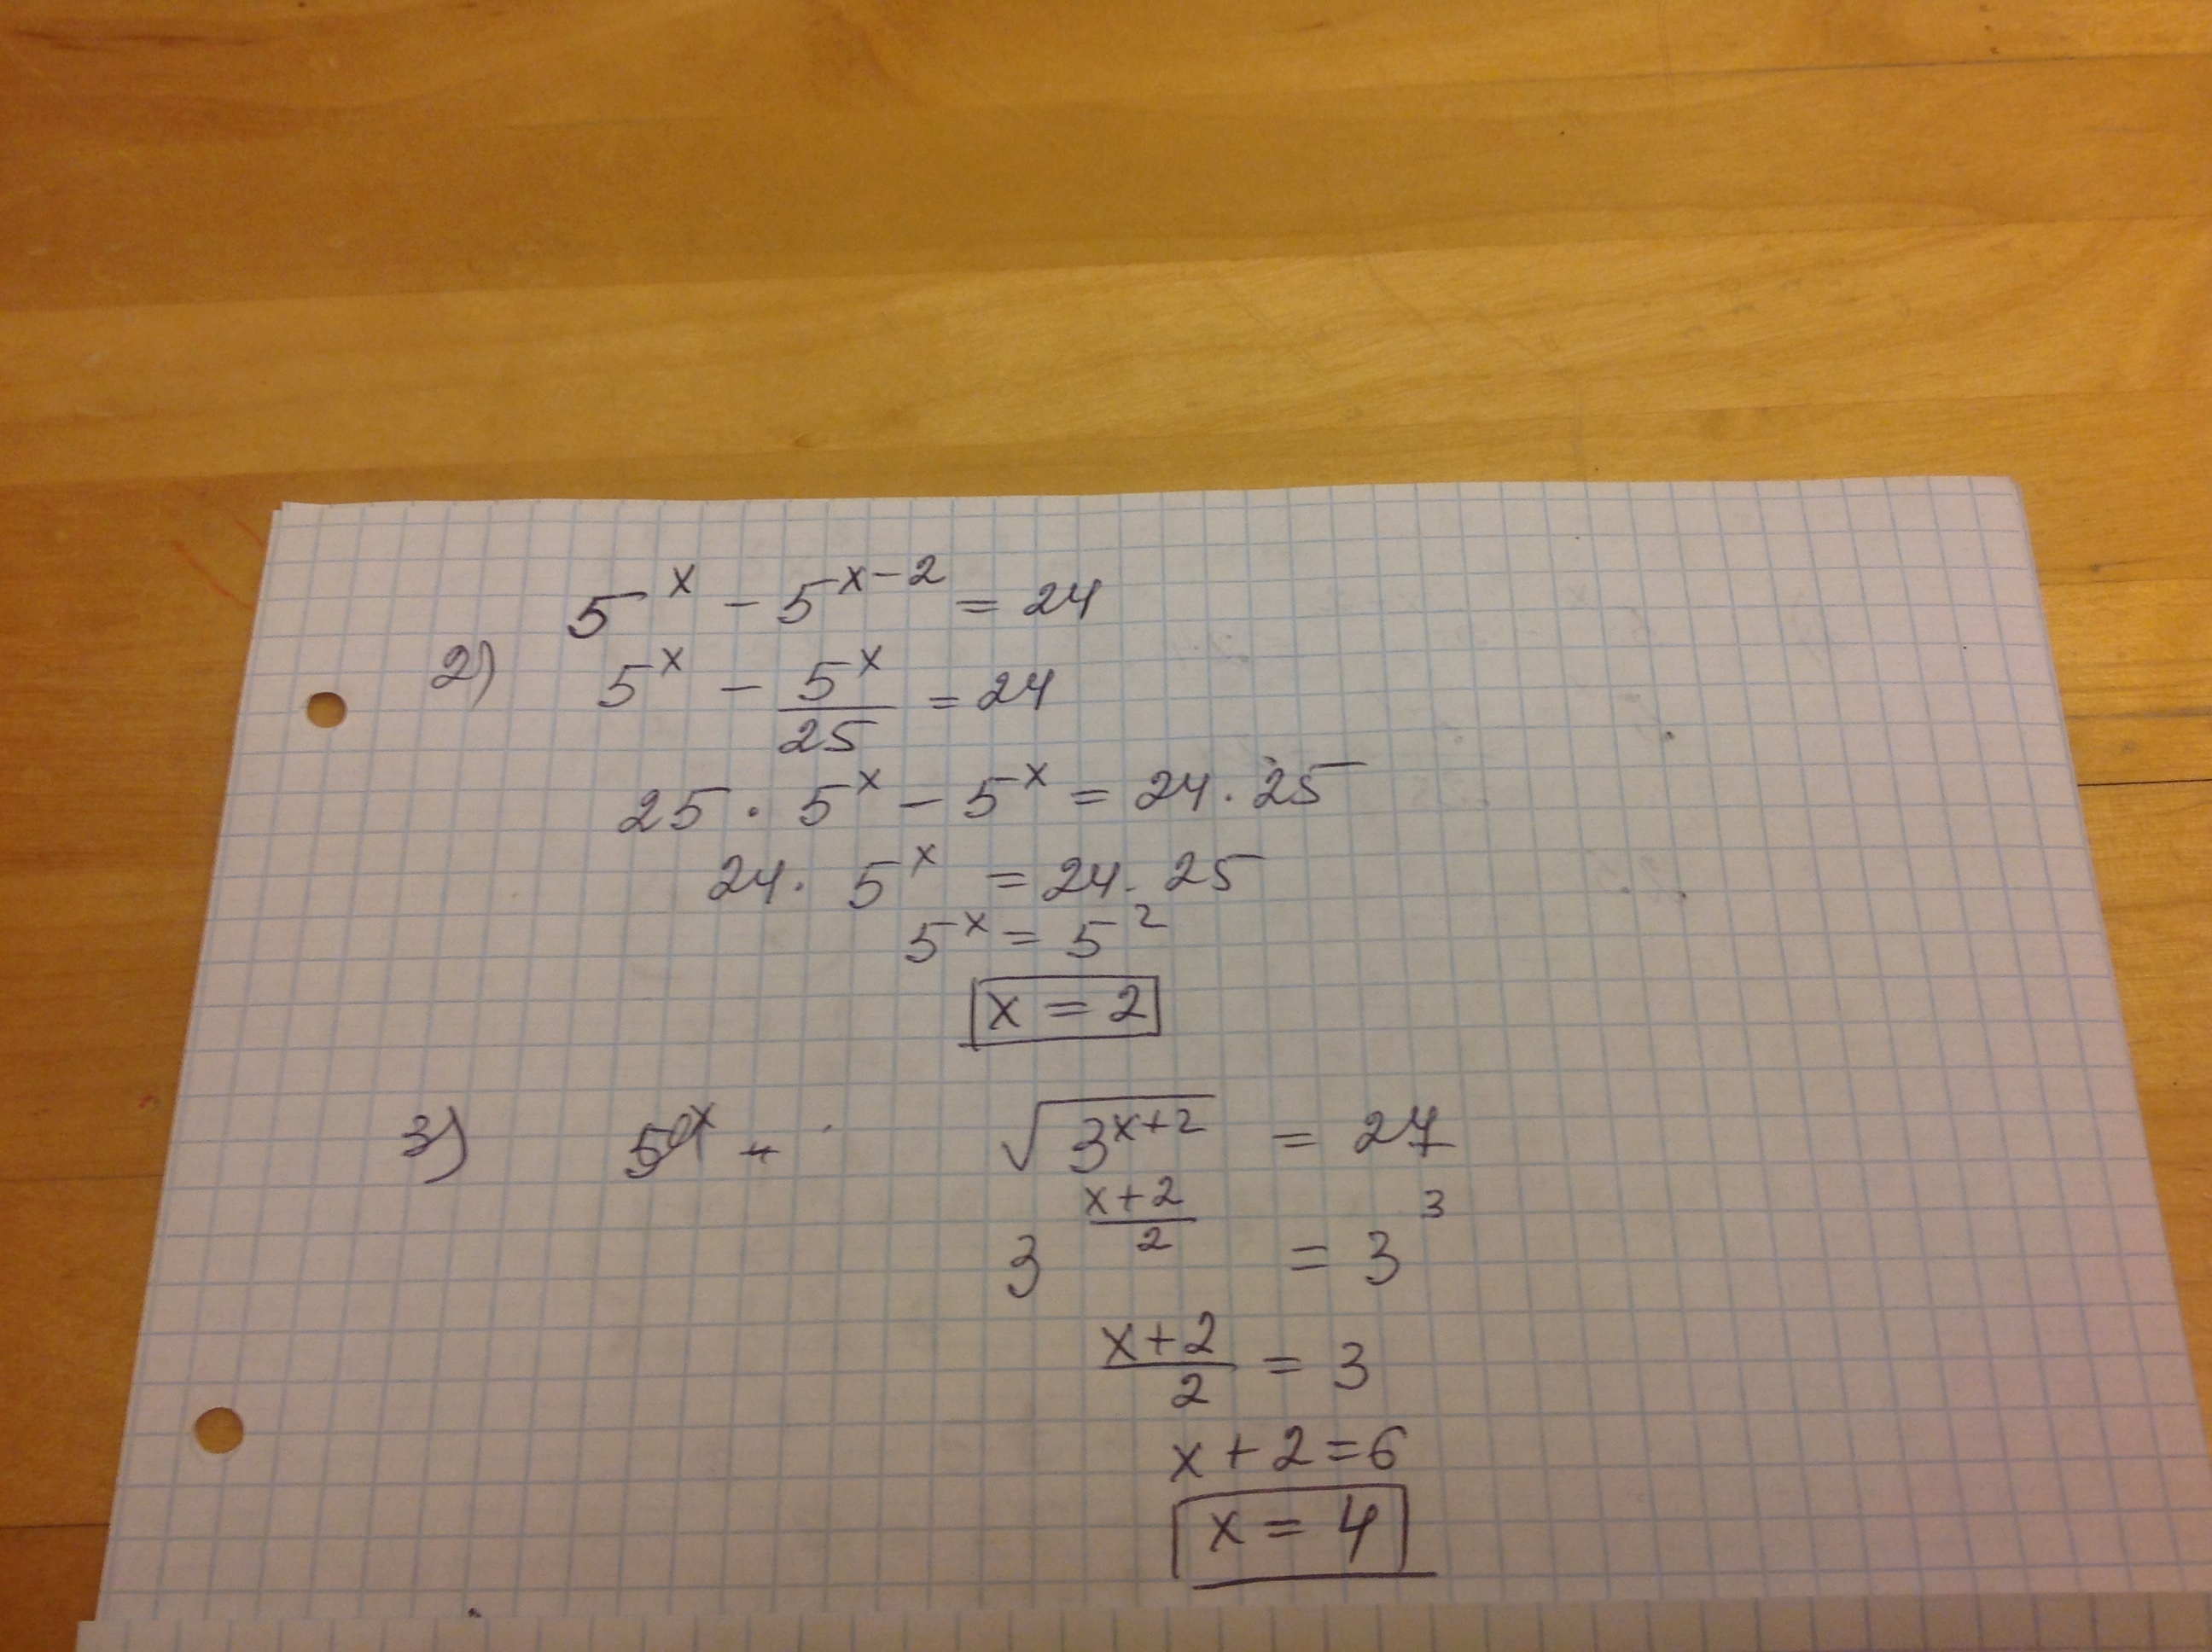 5^x - 5^(x-2) = 24
2) 5^x - 5^x/25 = 24
25 · 5^x - 5^x = 24 · 25
24 · 5^x = 24 · 25
5^x = 5^2
x = 2
3) √(3^(x+2)) = 27
3^((x+2)/2) = 3^3
(x+2)/2 = 3
x + 2 = 6
x = 4